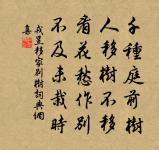 千種庭前樹
人移樹不移
看花愁作別
不及未栽時
戎昱移家別樹詞典網
喜